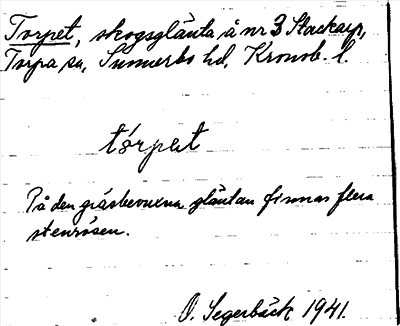 Torpet, skogsglänta å nr 3 Stackarp,
Torpa sn, Sunnerbo hd, Kronob. l.
tórpet
På den gräsbevuxna gläntan finnas flera
stenrösen.
O. Segerbäck 1941.